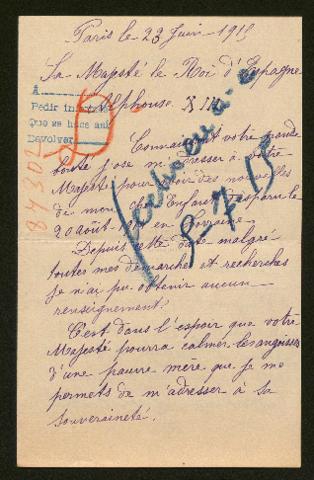 Paris le 23 Juin 1915
Sa Majesté le Roi d'Espagne
Alphonse XIII
A
Pedir in
Que se hace
Devolver
84302
Connaissant votre grande
bonté j'ose m'adresser à votre
Majesté pour avoir des nouvelles
de mon cher Enfant disparu le
20 août en Lorraine
Depuis cette date malgré
toutes mes démarches et recherches
je n'ai pu obtenir aucun
renseignement.
C'est dans l'espoir que votre
Majesté pourra calmer les angoisses
d'une pauvre mère que je me
permets de m'adresser à sa
souveraineté.
9 7 15